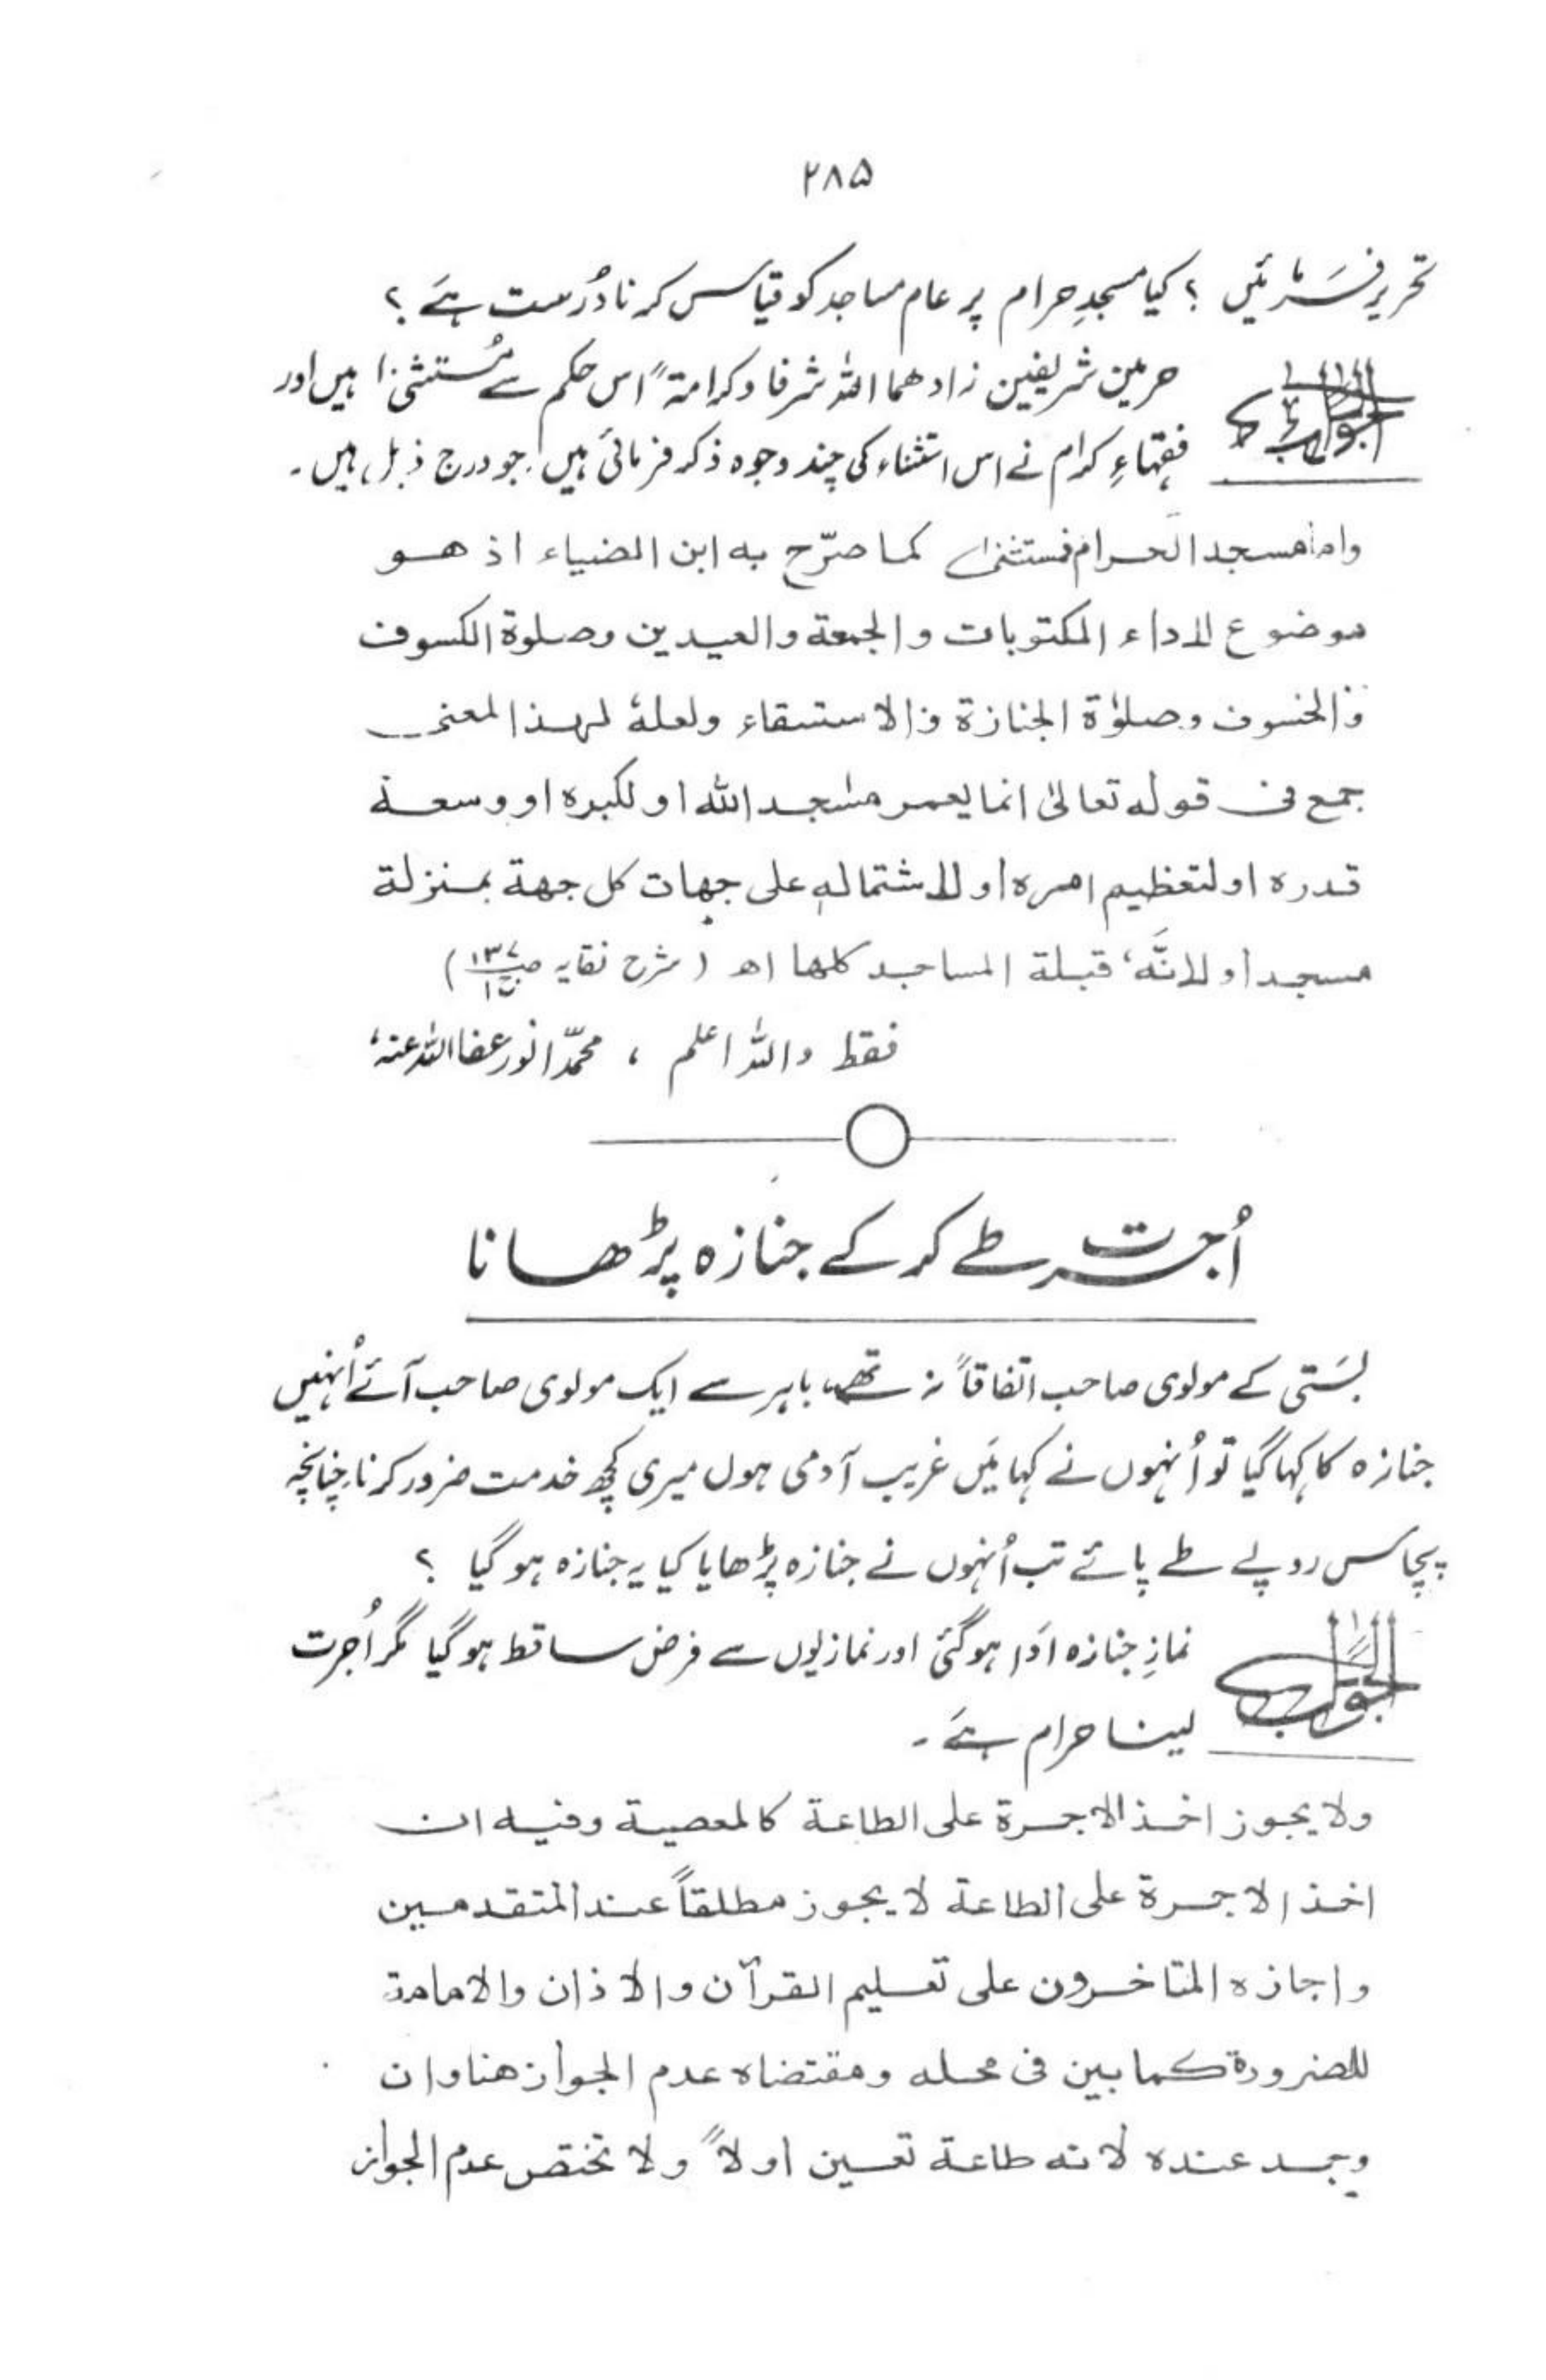 ۲۸۵
تحریر فرمائیں ؟ کیا مسجدِ حرام پر عام مساجد کو قیاس کرنا دُرست ہے ؟
الجواب حرمین شریفین زادهما اللہ شرفا وکرامة ً اس حکم سے مُستثنیٰ ہیں اور
فقہاءِ کرام نے اس استثناء کی چند وجوہ ذکر فرمائی ہیں، جو درج ذیل ہیں ۔
واما مسجد الحرام فمستثنیٰ كما صرّح به ابن الضياء اذ هو
موضوع لاداء المكتوبات والجمعة والعيدين وصلوة الكسوف
والخسوف وصلوٰة الجنازة والاستسقاء ولعلهٗ لهذا المعنى
جمع فى قوله تعالىٰ انما يعمر مسٰجد الله او لكبره او وسعة
قدره او لتعظيم امره او لاشتماله على جهات كل جهة بمنزلة
مسجد او لانَّهٗ قبلة المساجد كلها اھ (شرح نقایہ ص۱۳۷ ج۱)
فقط واللہ اعلم ، محمّد انور عفا اللہ عنہٗ
اُجرت طے کر کے جنازہ پڑھانا
بستی کے مولوی صاحب اتفاقاً نہ تھے، باہر سے ایک مولوی صاحب آئے اُنہیں
جنازہ کا کہا گیا تو اُنہوں نے کہا مَیں غریب آدمی ہوں میری کچھ خدمت ضرور کرنا چنانچہ
پچاس روپے طے پائے تب اُنہوں نے جنازہ پڑھایا کیا یہ جنازہ ہو گیا ؟
الجواب نمازِ جنازہ اَدا ہو گئی اور نمازیوں سے فرض ساقط ہو گیا مگر اُجرت
لینا حرام ہے ۔
ولا يجوز اخذ الاجرة على الطاعة كالمعصية وفيه ان
اخذ الاجرة على الطاعة لا يجوز مطلقاً عند المتقدمين
واجازه المتاخرون على تعليم القرآن والاذان والامامة
للضرورة كما بين فى محله ومقتضاه عدم الجواز هنا وان
وجد عنده لانه طاعة تعين اولاً ولا تختص عدم الجواز